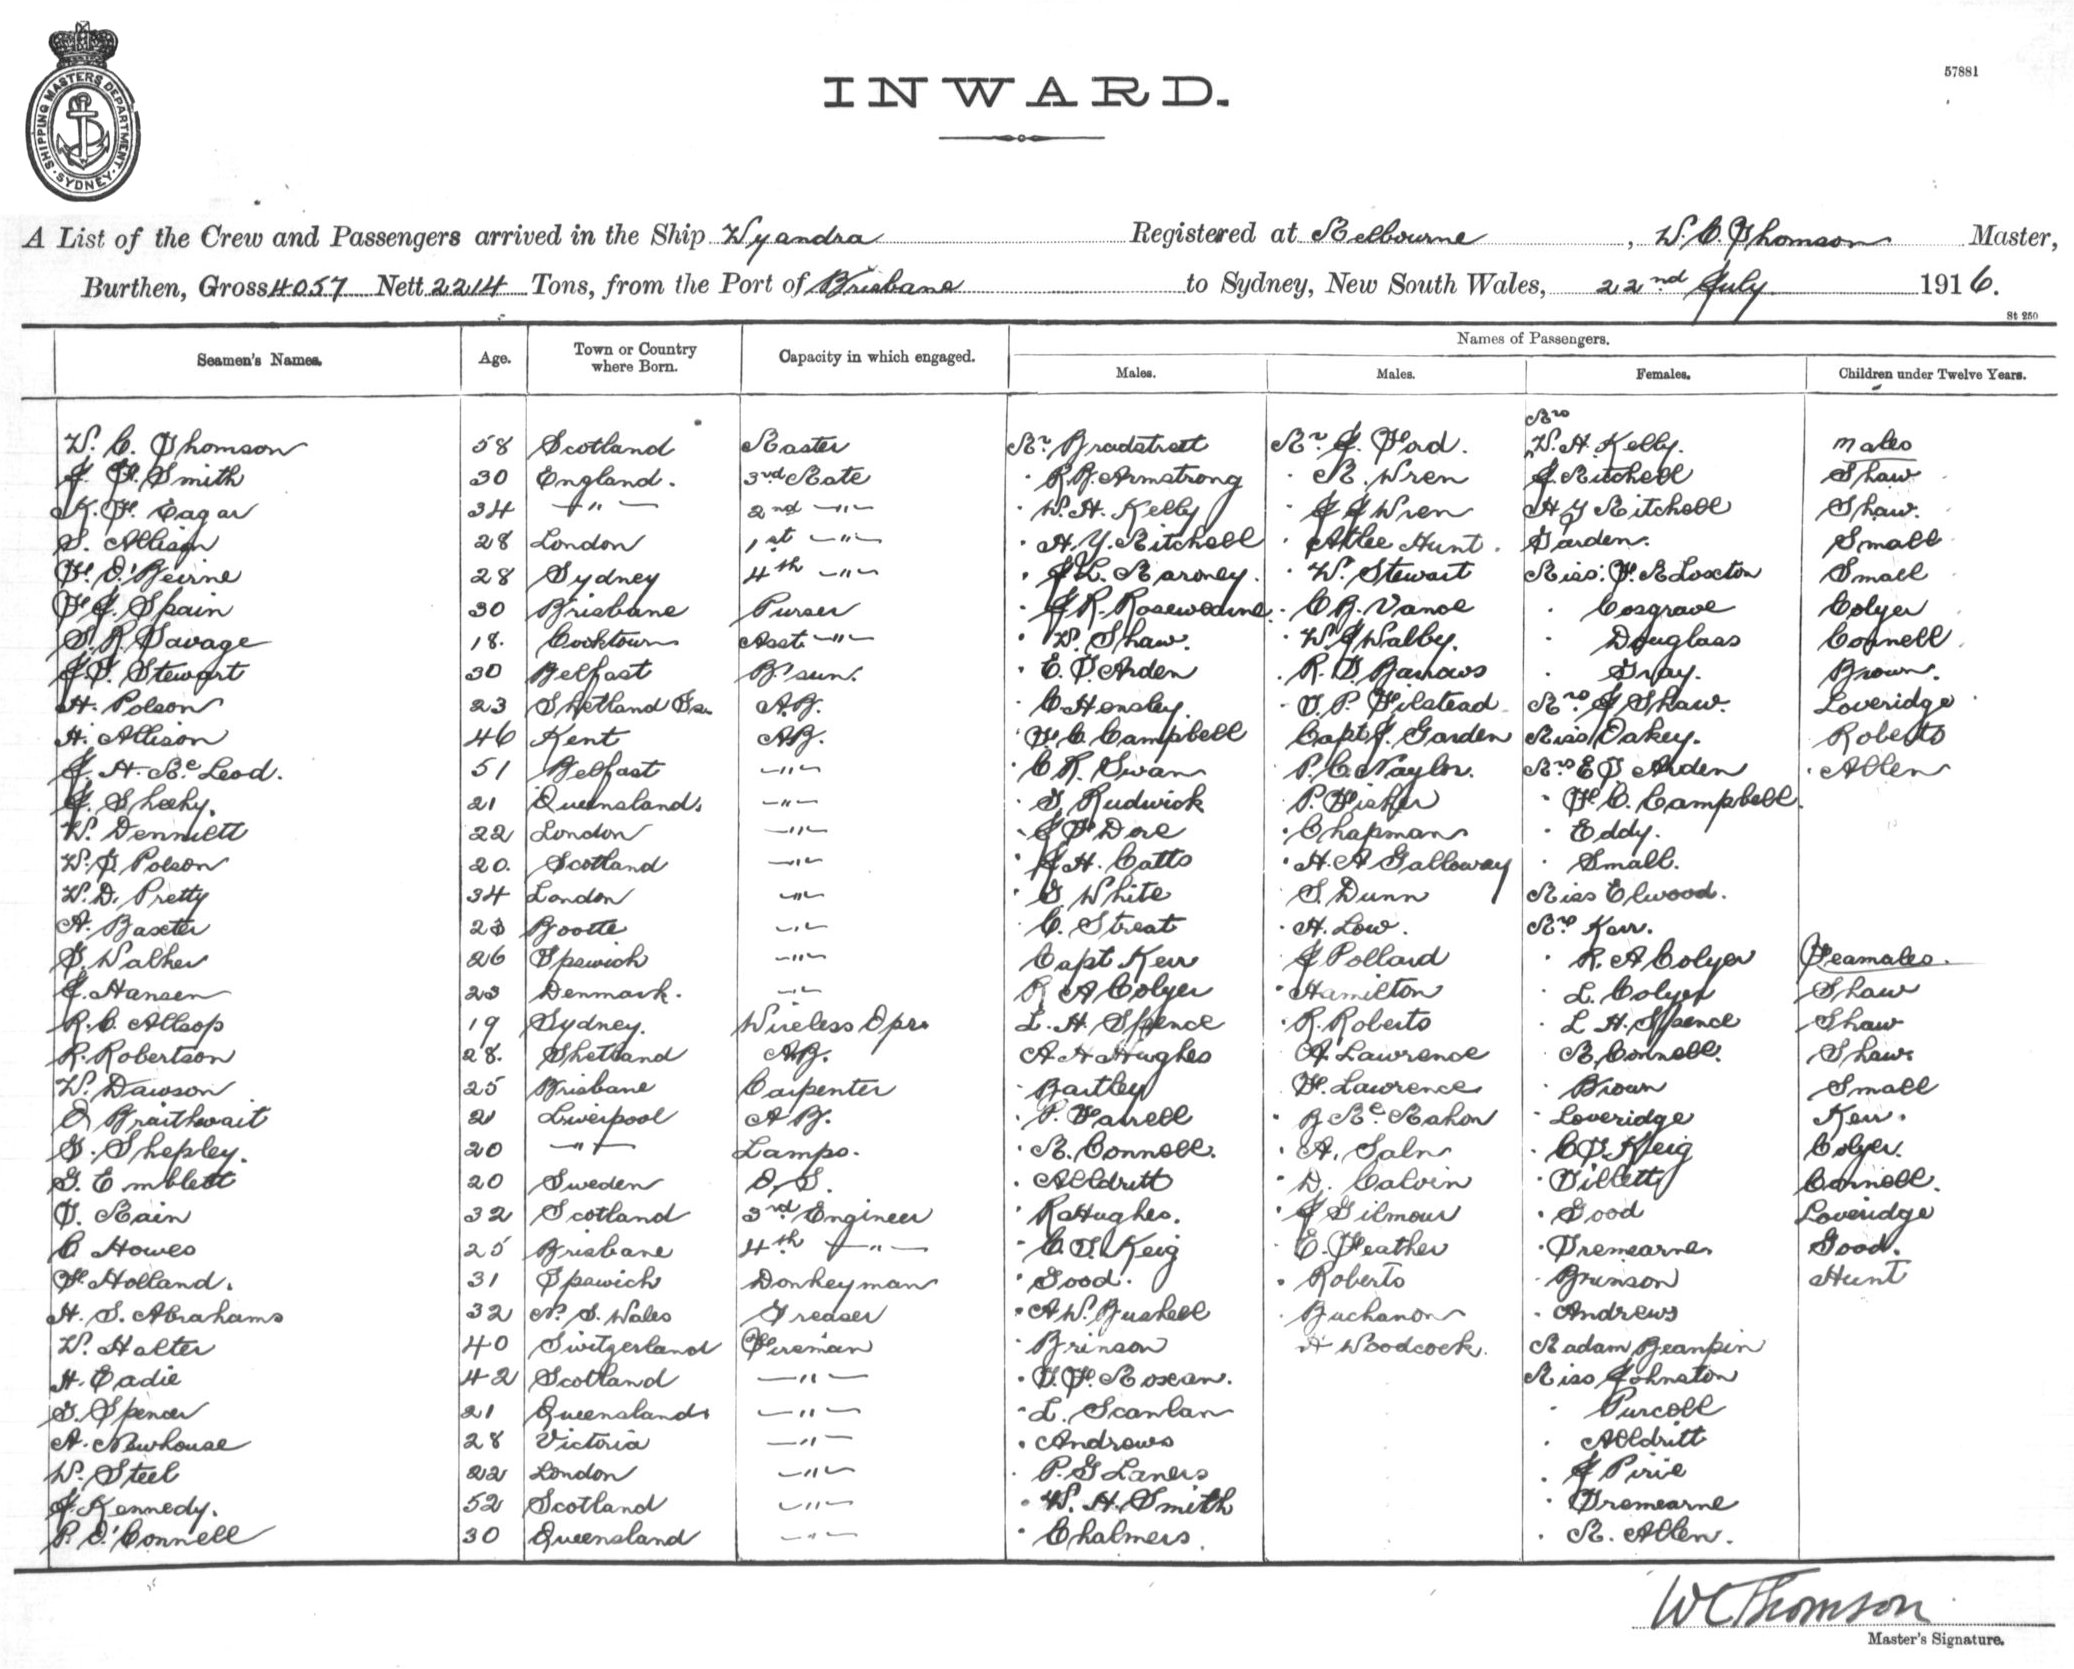 SHIPPING MASTERS DEPARTMENT SYDNEY
57881
INWARD.
A List of the Crew and Passengers arrived in the Ship Wyandra Registered at Melbourne, W. C. Thomson Master,
Burthen, Gross 4057 Nett 2214 Tons, from the Port of Brisbane to Sydney, New South Wales, 22nd July 1916.
St 250
Seamen's Names. Age. Town or Country where Born. Capacity in which engaged. Names of Passengers.
Males. Males. Females. Children under Twelve Years.
Mrs
W. C. Thomson 58 Scotland Master Mr. Bradstrett Mr. J. Ford. W. H. Kelly. Males
J. F. Smith 30 England. 3rd Mate R. B. Armstrong M. Wren J Mitchell Shaw
K. F. Eagar 34 -"- 2nd -"- W. H. Kelly J J Wren H Y Mitchell Shaw.
S. Allison 28 London 1st -"- H. Y. Mitchell Atlee Hunt. Garden. Small
F. O'Beirne 28 Sydney 4th -"- J L. Maroney. W. Stewart Miss. F. M Loxton Small
F J. Spain 30 Brisbane Purser J R. C. B. Vance Cosgrave Colyer
S. R. Savage 18. Cooktown Asst -"- W. Shaw. W. J Walby. Douglass Connell
J. T. Stewart 30 Belfast B'sun. E. T. Arden R. D. Barrows Gray. Brown.
H. Polson 23 Shetland Is. A.B. C Hensley. T. P. Filstead Mrs. J Shaw. Loveridge
H. Allison 46 Kent AB. F. C. Campbell Capt J. Garden Miss Oakey. Roberts
J. H. McLeod. 51 Belfast -"- C R. Swan P. C. Naylor. Mrs E T Arden Allen
J. Sheehy. 21 Queensland. -"- G Rudwick P. Fisher F. C. Campbell.
W. Dennett 22 London -"- J F Dore Chapman Eddy.
W. J. Polson 20. Scotland -"- J H. Catts H. A Galloway Small.
W. D. Pretty 34 London -"- G White S. Dunn Miss Elwood.
A. Baxter 23 Bootle -"- C. Streat H. Low. Mrs. Kerr.
T. Walker 26 Ipswich -"- Capt Kerr J Pollard R. A Colyer Feamales.
J. Hansen 23 Denmark. -"- R A Colyer Hamilton L. Colyer Shaw
R. C. Allsop 19 Sydney. Wireless Opr. L. H. Spence R. Roberts L H. Spence Shaw
R. Robertson 28. Shetland A.B. A H Hughes A. Lawrence M. Connell. Shaw
W. Dawson 25 Brisbane Carpenter Bartley F. Lawrence Brown Small
Braithwait 21 Liverpool A B. P. Farrell B McMahon Loveridge Kerr.
G. Shepley. 20 -"- Lamps. M. Connell. A. Saln C T. Keig Colyer.
G. Emblett 20 Sweden O. S. Alldritt D. Calvin Tillett Connell.
T. Main 32 Scotland 3rd Engineer R Hughes. J Gilmour Good Loveridge
C Howes 25 Brisbane 4th -"- C. T. Keig E. Feather Tremearne Good.
F. Holland. 31 Ipswich Donkeyman Good. Roberts Brinson Hunt
H. S. Abrahams 32 N. S. Wales Greaser A W. Bushell Buchanon Andrews
W. Halter 40 Switzerland Fireman Brinson A Woodcock. Madam Beanpin
H. Eadie 42 Scotland -"- T. F. Moxean. Miss Johnston
G. Spencer 21 Queensland. -"- L. Scanlan Purcell
A. Newhouse 28 Victoria -"- Andrews Alldritt
W. Steel 22 London -"- P. G Laners J Pirie
J. Kennedy. 52 Scotland -"- W. H. Smith Tremearne
P. O'Connell 30 Queensland -"- Chalmers. M. Allen.
W C Thomson
Master's Signature.